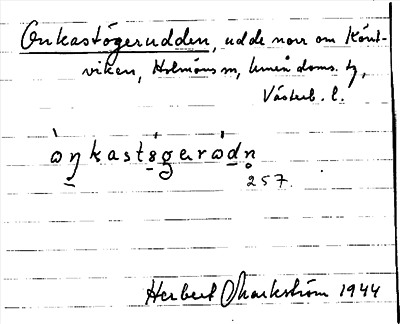 Onkastögerudden, udde norr om Kont-
viken, Holmöns sn, Umeå doms. tg,
Västerb. l.
òŋkastögerùdn̥
257.
Herbert Markström 1944